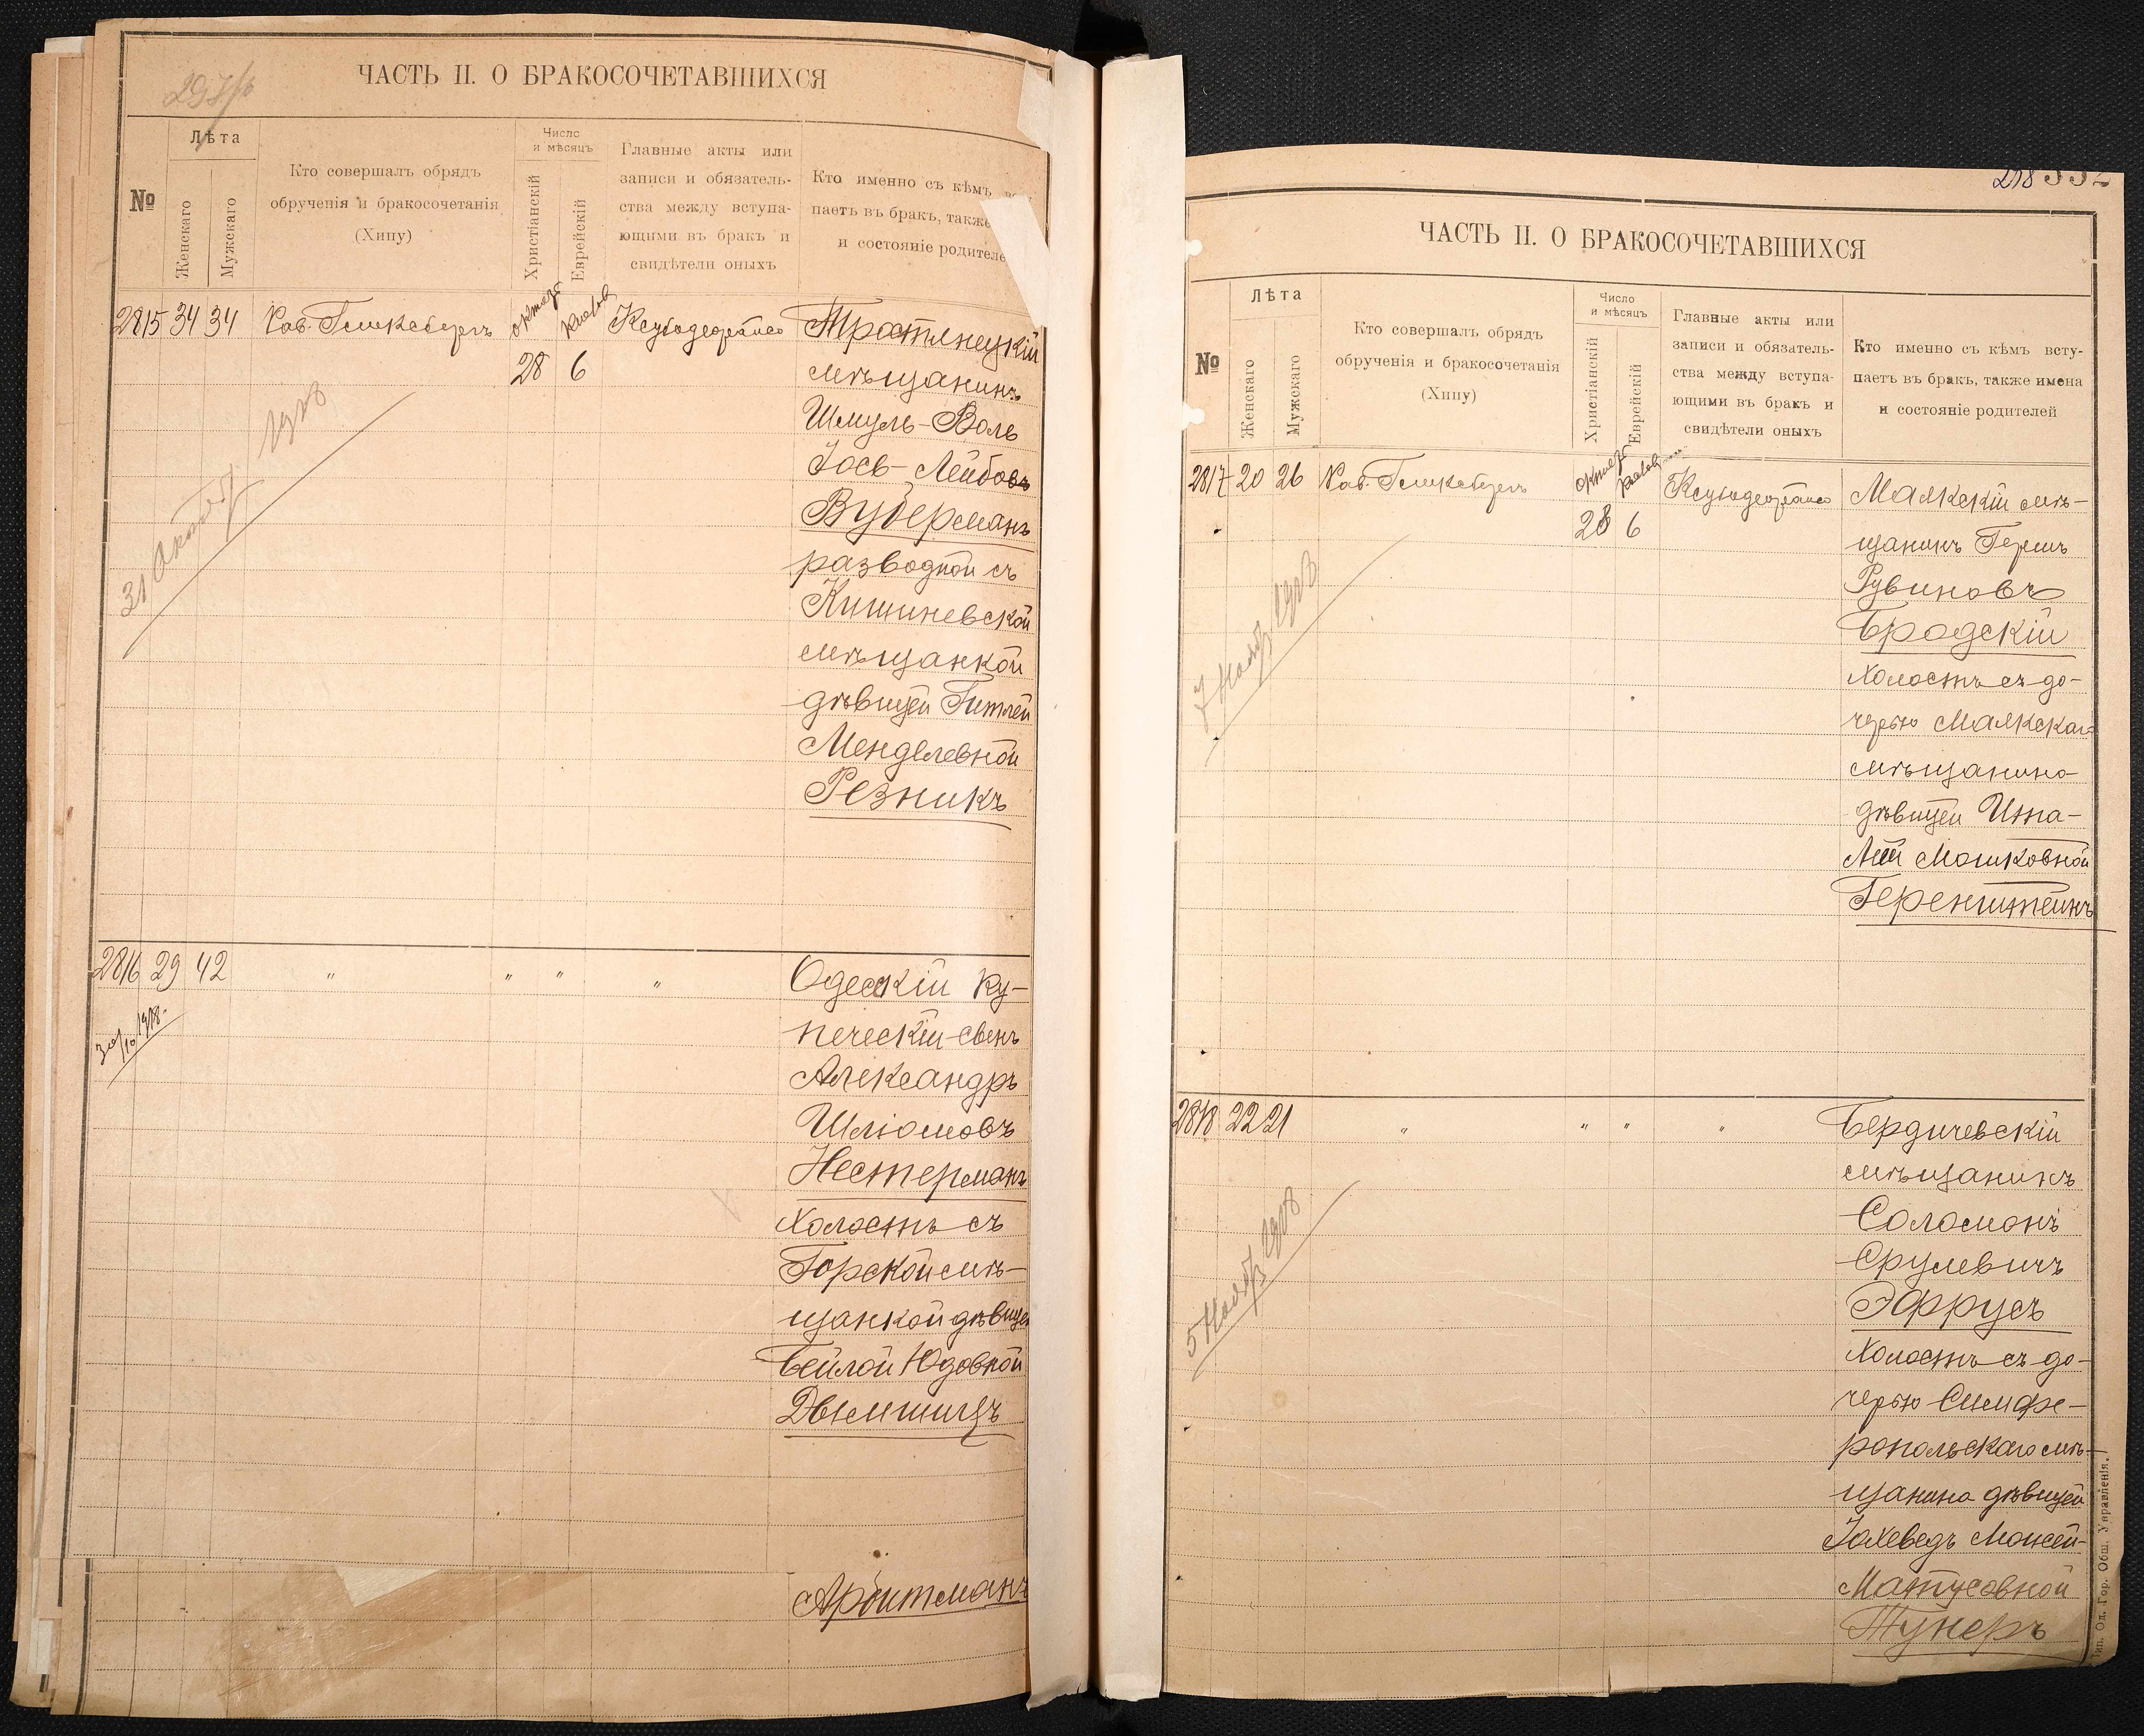 ЧАСТЬ II. О БРАКОСОЧЕТАВШИХСЯ
№
Лѣта
Женскаго
Мужскаго
Кто совершалъ обрядъ
обрученія и бракосочетанія
(Хипу)
Число
и мѣсяцъ
Христіанскій
Еврейскій
Главные акты или
записи и обязатель-
ства между вступа-
ющими въ бракъ и
свидѣтели оныхъ
Кто именно съ кѣмъ
паетъ въ бракъ, также
и состояніе родителе
2815 34 34
28 6
Тростянецкій
мѣщанинъ
Шмуль-Воль
Іось-Лейбовъ
Вуберманъ
разводной съ
Кишиневской
мѣщанкой
дѣвицей Гитлей
Менделевной
Резникъ
31 Октяб 1908
2816 29 42 " " " "
Одесскій ку-
печескій сынъ
Александръ
Шліомовъ
Нестерманъ
Холостъ съ
Горской мѣ-
щанкой дѣвицей
Бейлой Юдовной
Двылшицъ
Аройтманъ
298
ЧАСТЬ II. О БРАКОСОЧЕТАВШИХСЯ
№
Лѣта
Женскаго
Мужскаго
Кто совершалъ обрядъ
обрученія и бракосочетанія
(Хипу)
Число
и мѣсяцъ
Христіанскій
Еврейскій
Главные акты или
записи и обязатель-
ства между вступа-
ющими въ бракъ и
свидѣтели оныхъ
Кто именно съ кѣмъ всту-
паетъ въ бракъ, также имена
и состояніе родителей
2817 20 26
28 6
Маякскій мѣ-
щанинъ Гершъ
Рувиновъ
Бродскій
Холостъ съ до-
черью Маякскаго
мѣщанина
дѣвицей Инна-
Леей Мошковной
Геренштейнъ
7 Нояб 1908
2818 22 21 " " " "
Бердичевскій
мѣщанинъ
Соломонъ
Срулевичъ
Эфрусъ
Холостъ съ до-
черью Симфе-
ропольскаго мѣ-
щанина дѣвицей
Іохеведъ Мойсей-
Матусовной
Тунеръ
5 Нояб 1908
Тип. Од. Гор. Общ. Управленія.